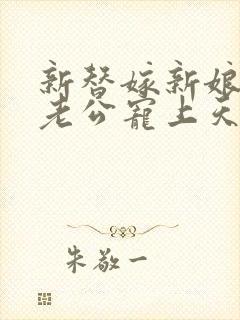 新替嫁新娘
老公宠上天
朱敬一